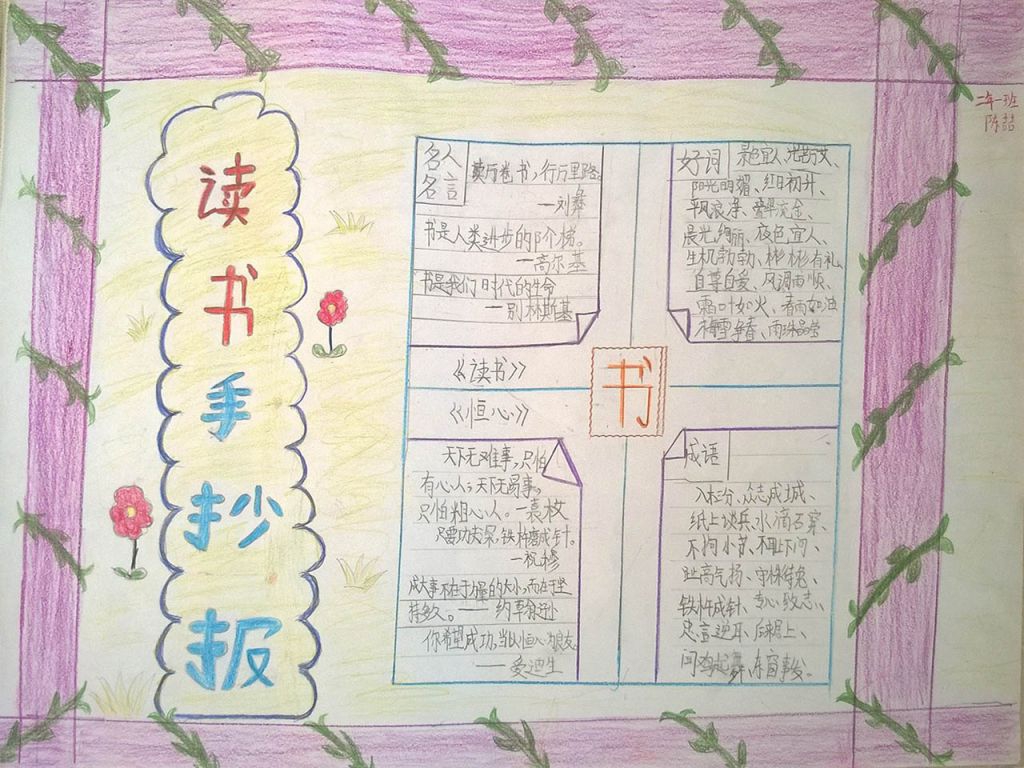 读书手抄报
二年一班
陈喆
名人
名言
读万卷书，行万里路
—刘彝
书是人类进步的阶梯。
—高尔基
书是我们时代的生命
—别林斯基
好词
景色宜人、光芒万丈、
阳光明媚、红日初升、
平风浪净、
晨光绚丽、夜色宜人、
生机勃勃、彬彬有礼、
自尊自爱、风调雨顺、
霜叶如火、春雨如油
梅雪争春、雨珠晶莹
《读书》
书
《恒心》
天下无难事，只怕
有心人；天下无易事，
只怕粗心人。—袁枚
只要功夫深，铁杵磨成针。
—祝穆
成大事不在于力量的大小，而在于坚
持多久。——约翰逊
你希望成功，当以恒心为良友
——爱迪生
成语
入木三分、众志成城、
纸上谈兵、水滴石穿、
不拘小节、不耻下问、
趾高气扬、守株待兔、
铁杵成针、专心致志、
忠言逆耳、后来居上、
闻鸡起舞、东窗事发。